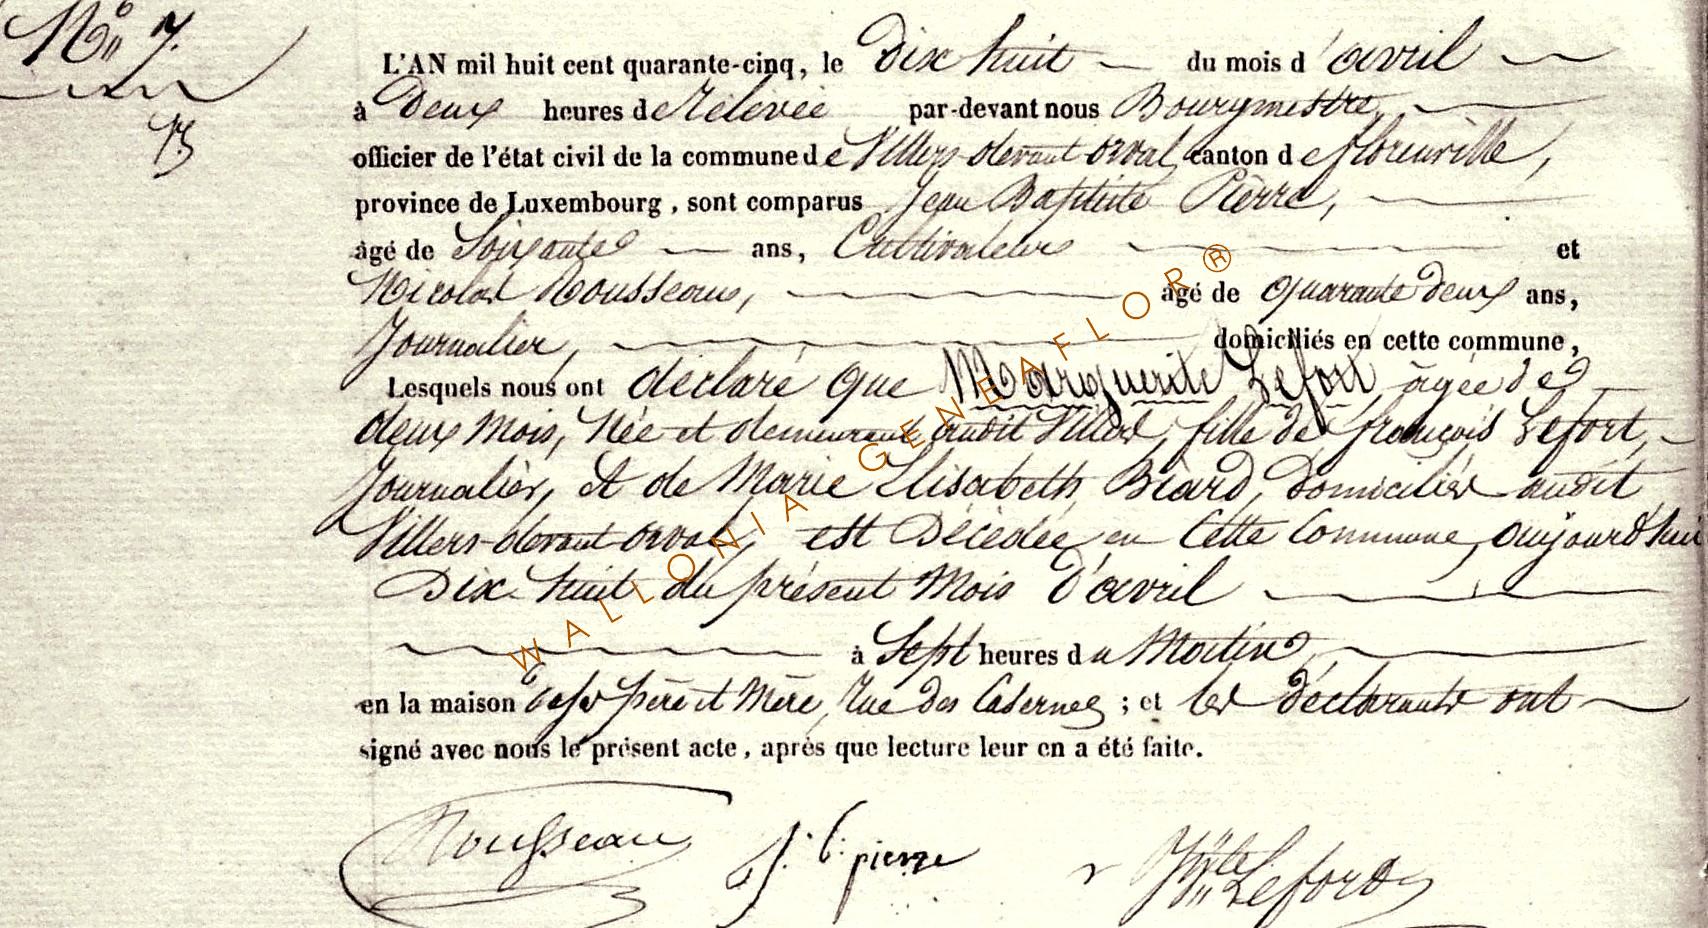 N° 7.
L'AN mil huit cent quarante-cinq, le Dix huit du mois d'avril
à Deux heures de Rélévée par-devant nous Bourgmestre,
officier de l'état civil de la commune de Villers devant orval, canton de florenville,
province de Luxembourg, sont comparus Jean Baptiste Pierre,
âgé de Soixante ans, Cultivateur et
Nicolas Rousseau, âgé de quarante deux ans,
Journalier, domiciliés en cette commune,
Lesquels nous ont déclaré que Marguerite Lefort, âgée de
deux mois, Née et demeurant audit Villers, fille de françois Lefort,
Journalier, et de Marie Elisabeth Biard, domiciliés audit
Villers-devant-orval, est Décédée en Cette Commune, aujourd'hui
Dix huit du présent Mois d'avril
à Sept heures du Matin,
en la maison de ses père et Mère, Rue des Casernes ; et les déclarants ont
signé avec nous le présent acte, après que lecture leur en a été faite.
Rousseau J. b. pierre Lefort
WALLONIA GENEAFLOR ®